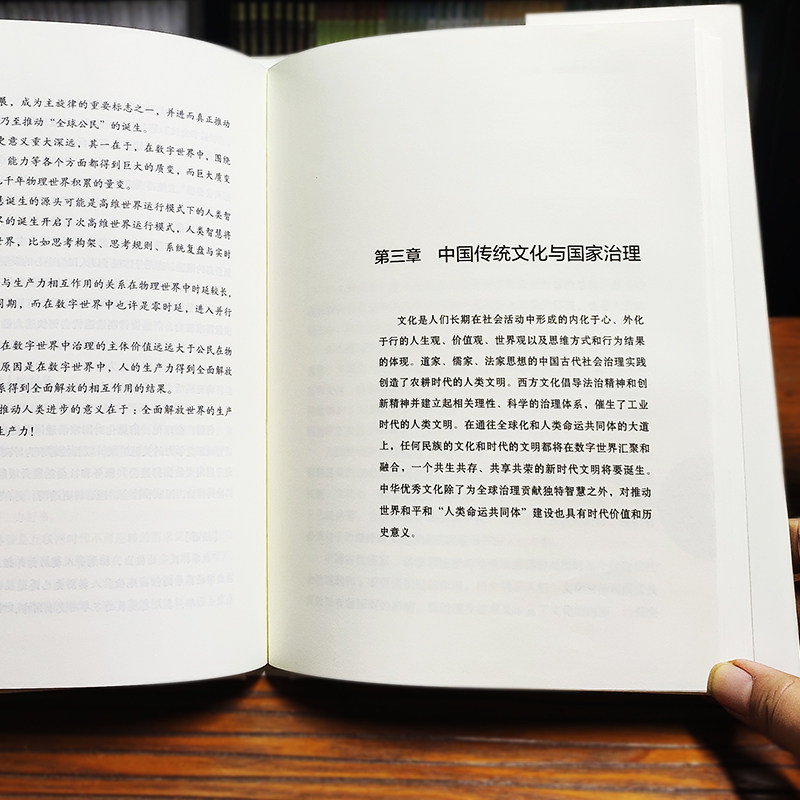 展，成为主旋律的重要标志之一，并进而真正推动
乃至推动“全球公民”的诞生。
史意义重大深远，其一在于，在数字世界中，围绕
、能力等各个方面都得到巨大的质变，而巨大质变
几千年物理世界积累的量变。
慧诞生的源头可能是高维世界运行模式下的人类智
界的诞生开启了次高维世界运行模式，人类智慧将
世界，比如思考构架、思考规则、系统复盘与实时
与生产力相互作用的关系在物理世界中时延较长，
周期，而在数字世界中也许是零时延，进入并行
在数字世界中治理的主体价值远远大于公民在物
原因是在数字世界中，人的生产力得到全面解放
系得到全面解放的相互作用的结果。
推动人类进步的意义在于：全面解放世界的生产
生产力！
第三章 中国传统文化与国家治理
文化是人们长期在社会活动中形成的内化于心、外化
于行的人生观、价值观、世界观以及思维方式和行为结果
的体现。道家、儒家、法家思想的中国古代社会治理实践
创造了农耕时代的人类文明。西方文化倡导法治精神和创
新精神并建立起相关理性、科学的治理体系，催生了工业
时代的人类文明。在通往全球化和人类命运共同体的大道
上，任何民族的文化和时代的文明都将在数字世界汇聚和
融合，一个共生共存、共享共荣的新时代文明将要诞生。
中华优秀文化除了为全球治理贡献独特智慧之外，对推动
世界和平和“人类命运共同体”建设也具有时代价值和历
史意义。